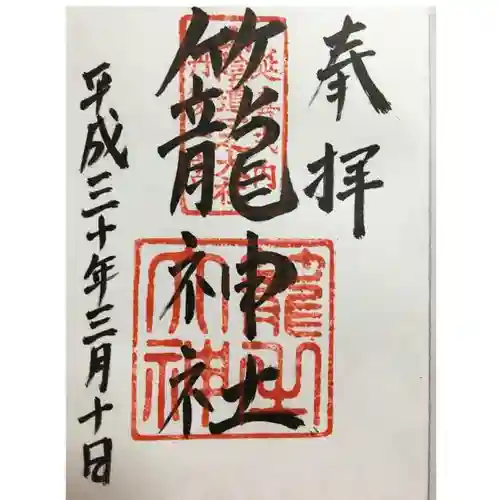 奉拝
籠神社
平成三十年三月十日
籠之大神